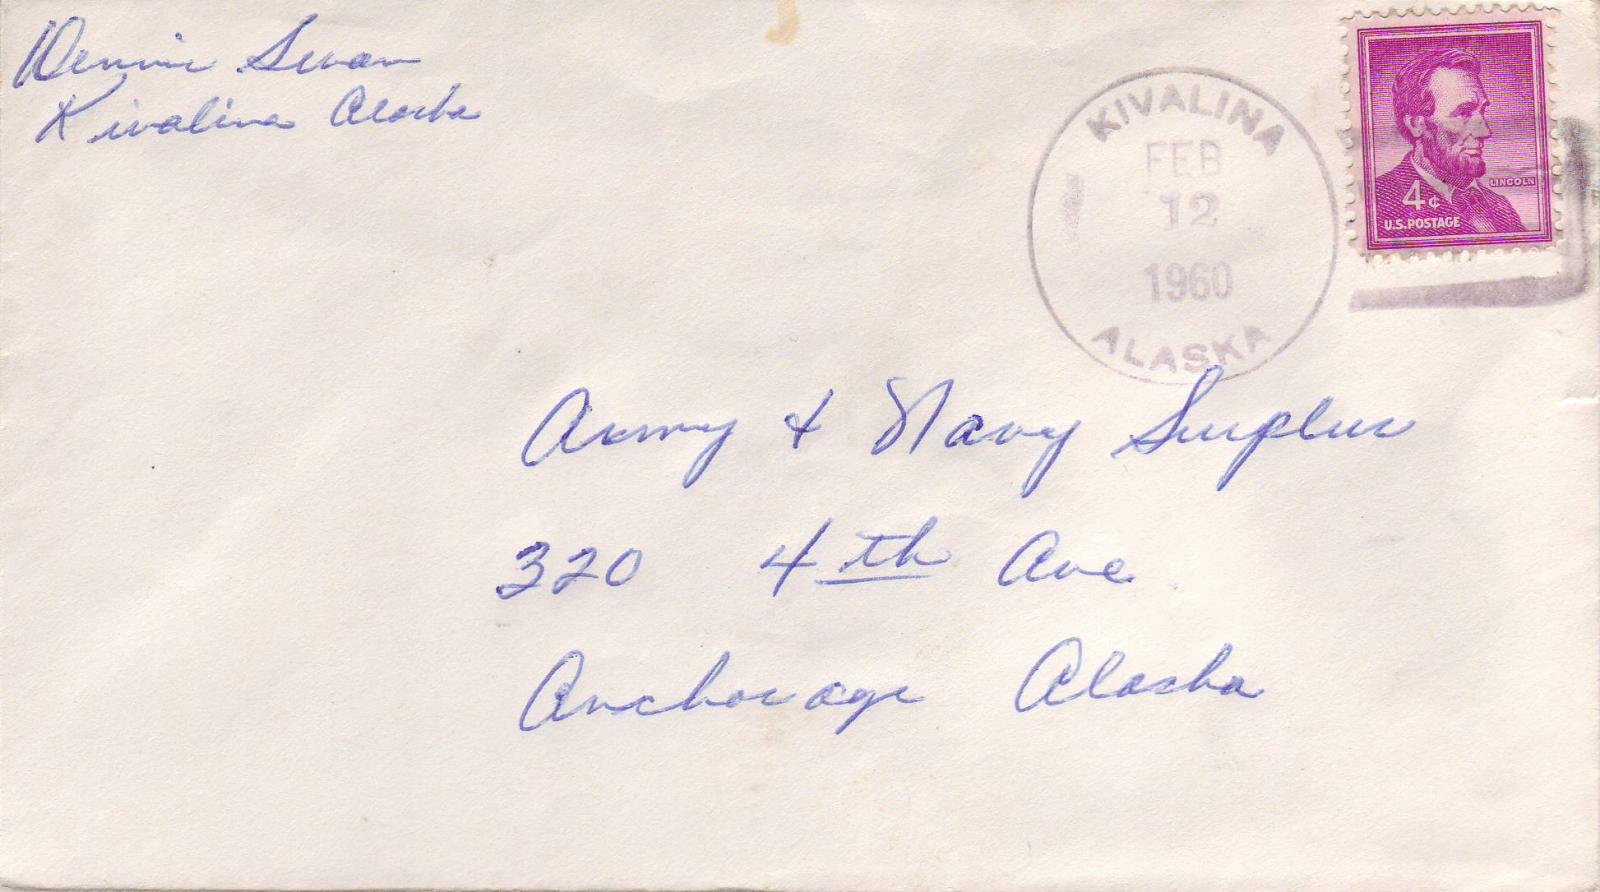 Dennie Swan
Kivalina Alaska
KIVALINA
FEB
12
1960
ALASKA
LINCOLN
4¢
U.S. POSTAGE
Army & Navy Surplus
320 4th Ave
Anchorage Alaska